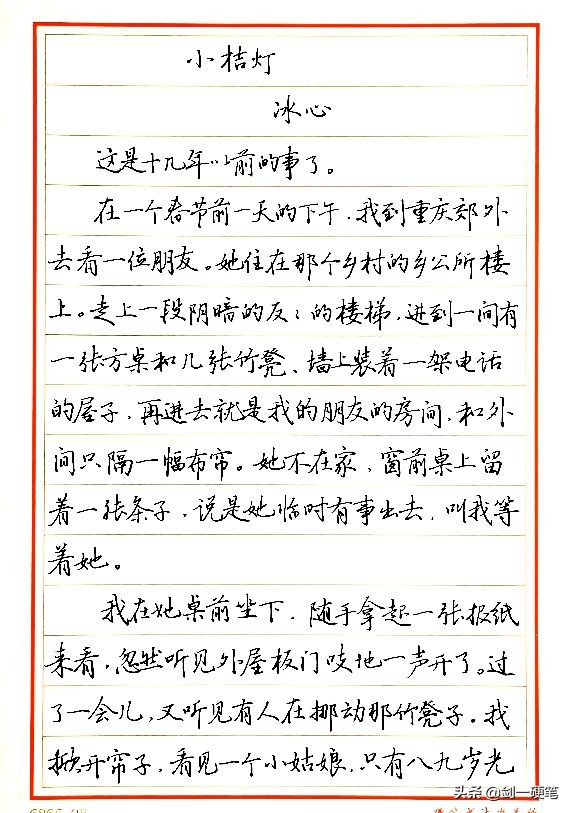 小桔灯
冰心
这是十几年以前的事了。
在一个春节前一天的下午，我到重庆郊外
去看一位朋友。她住在那个乡村的乡公所楼
上。走上一段阴暗的反：的楼梯，进到一间有
一张方桌和几张竹凳、墙上装着一架电话
的屋子，再进去就是我的朋友的房间，和外
间只隔一幅布帘。她不在家，窗前桌上留
着一张条子，说是她临时有事出去，叫我等
着她。
我在她桌前坐下，随手拿起一张报纸
来看，忽然听见外屋板门吱地一声开了。过
了一会儿，又听见有人在挪动那竹凳子。我
掀开帘子，看见一个小姑娘，只有八九岁光
头条 @剑一硬笔